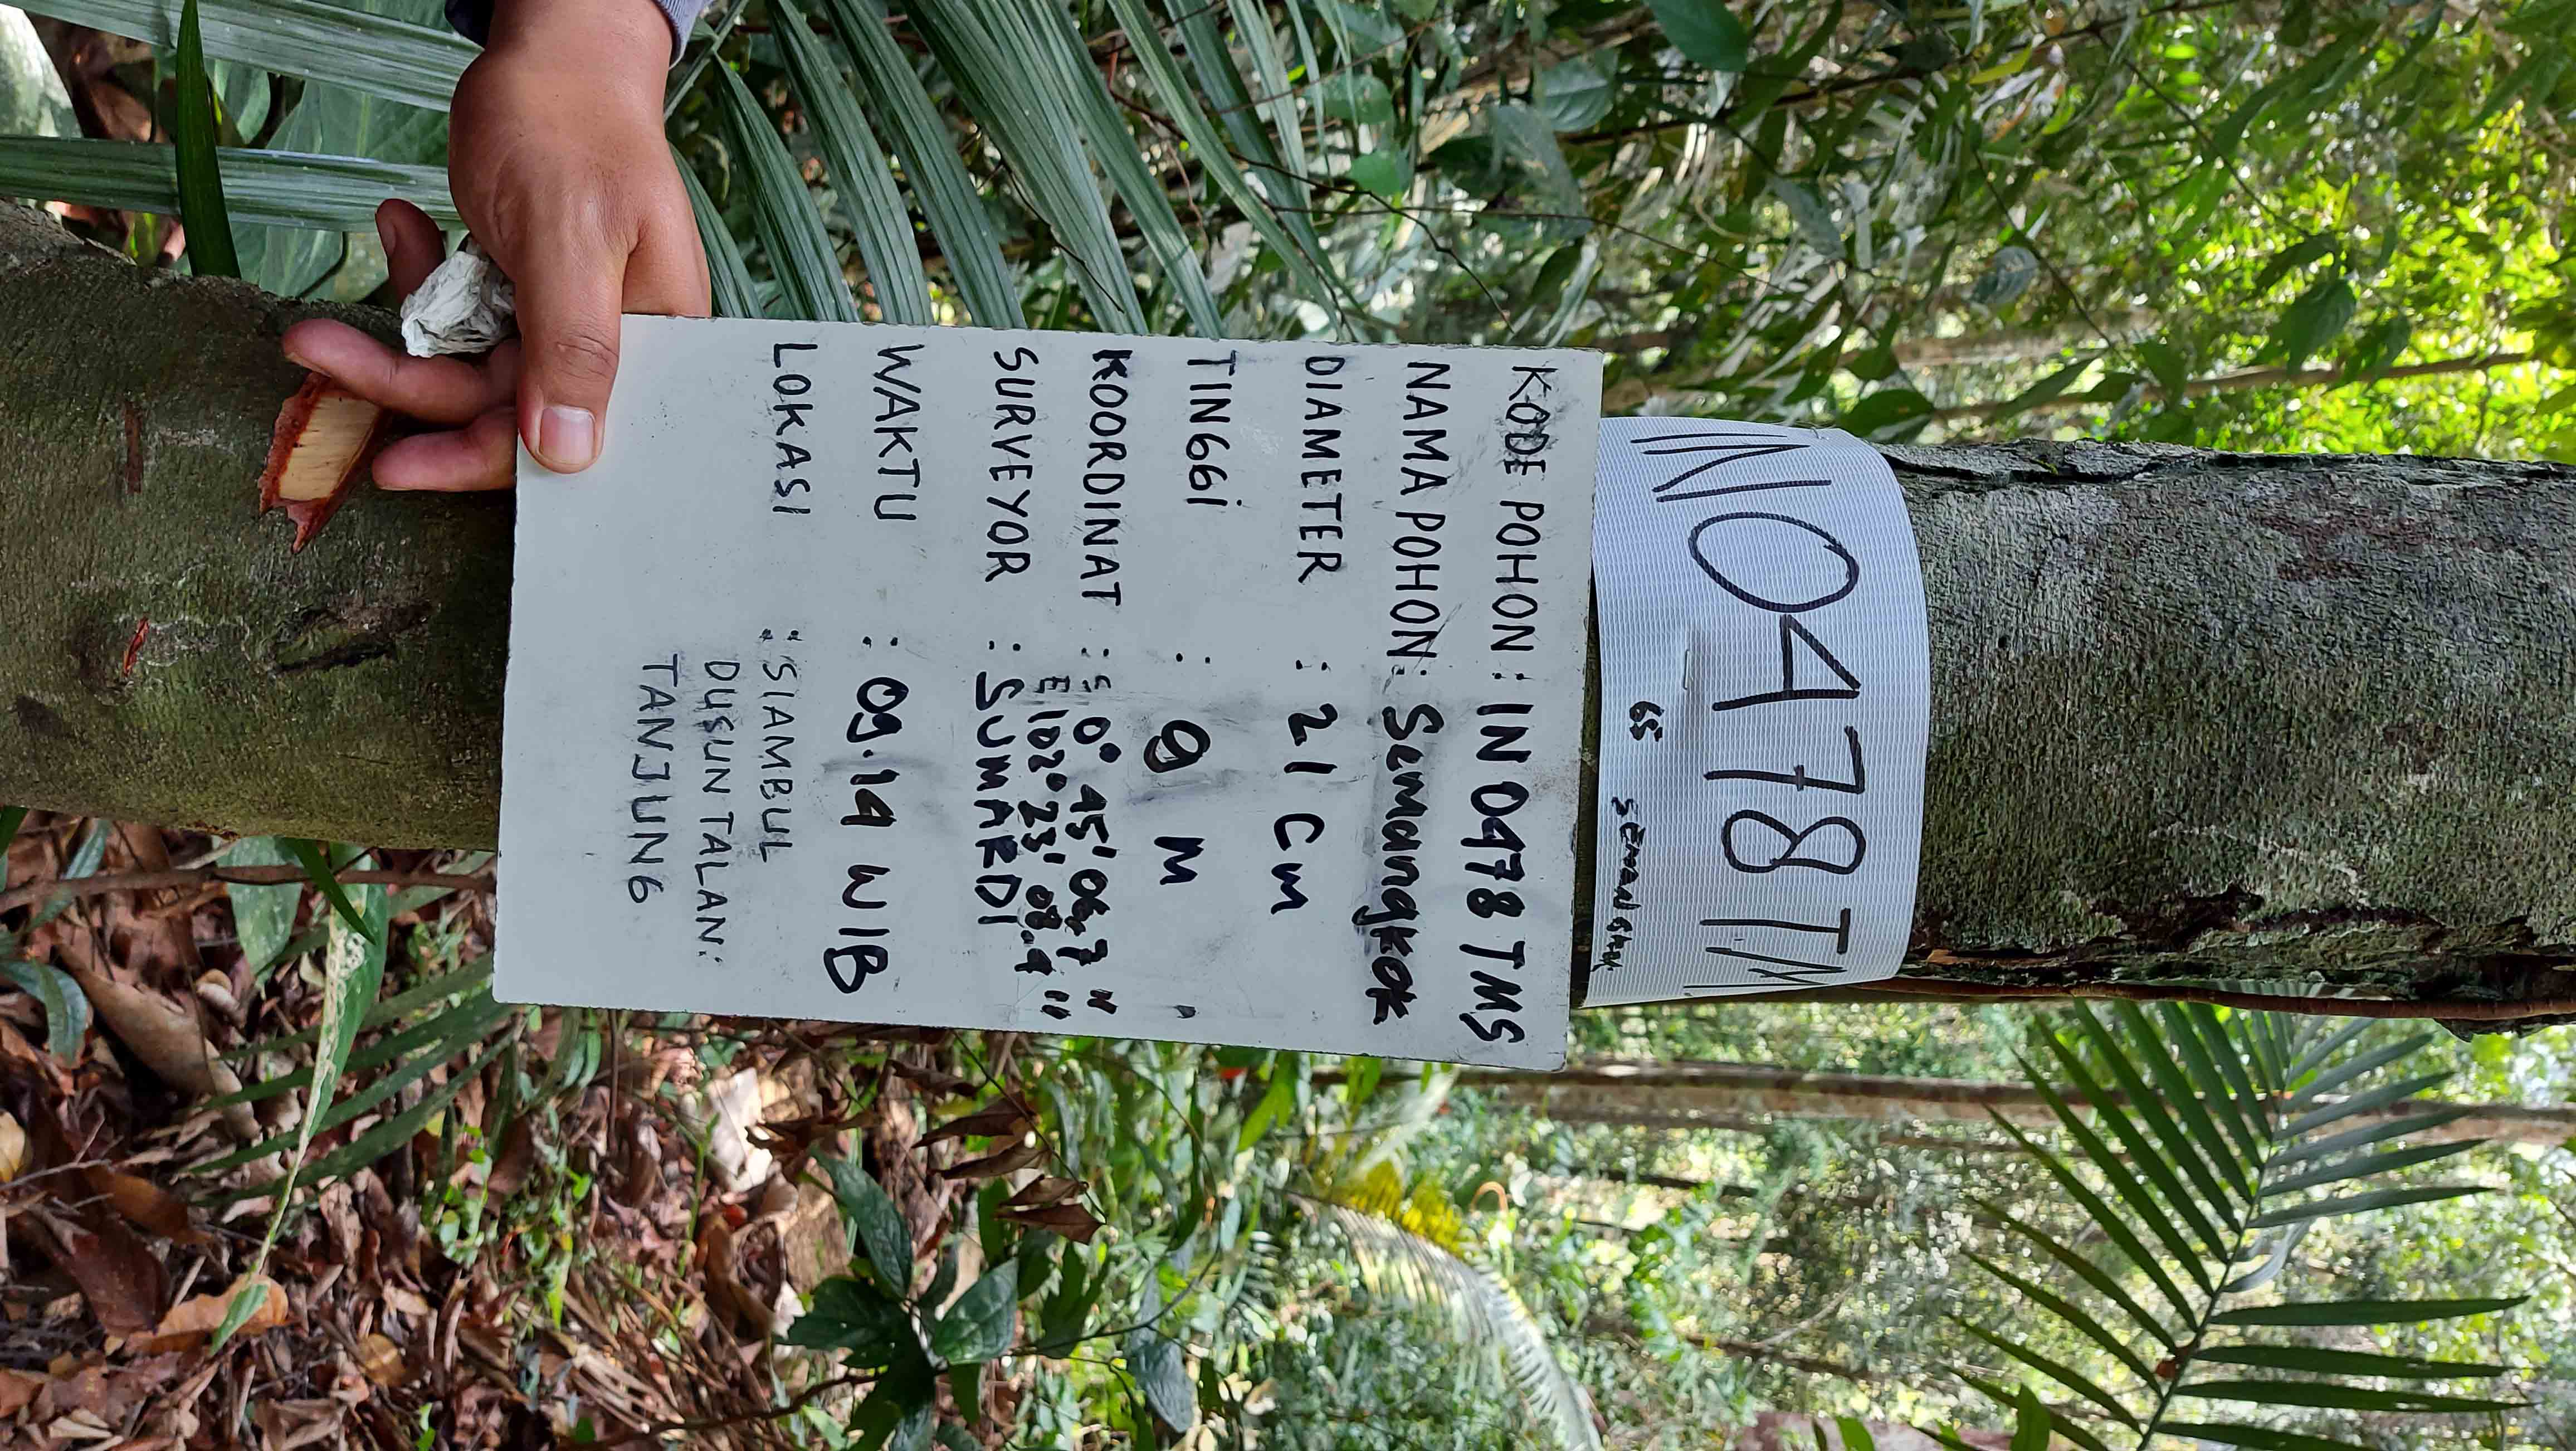 IN 0478 T.M
65 SEMANGKOK
KODE POHON : IN 0478 TMS
NAMA POHON : Semangkok
DIAMETER : 21 Cm
TINGGi : 9 M
KOORDINAT : S 0° 45' 06.7 "
E 102° 23' 08.4 "
SURVEYOR : SUMARDI
WAKTU : 09.14 WIB
LOKASI : SIAMBUL
DUSUN TALAN:
TANJUNG